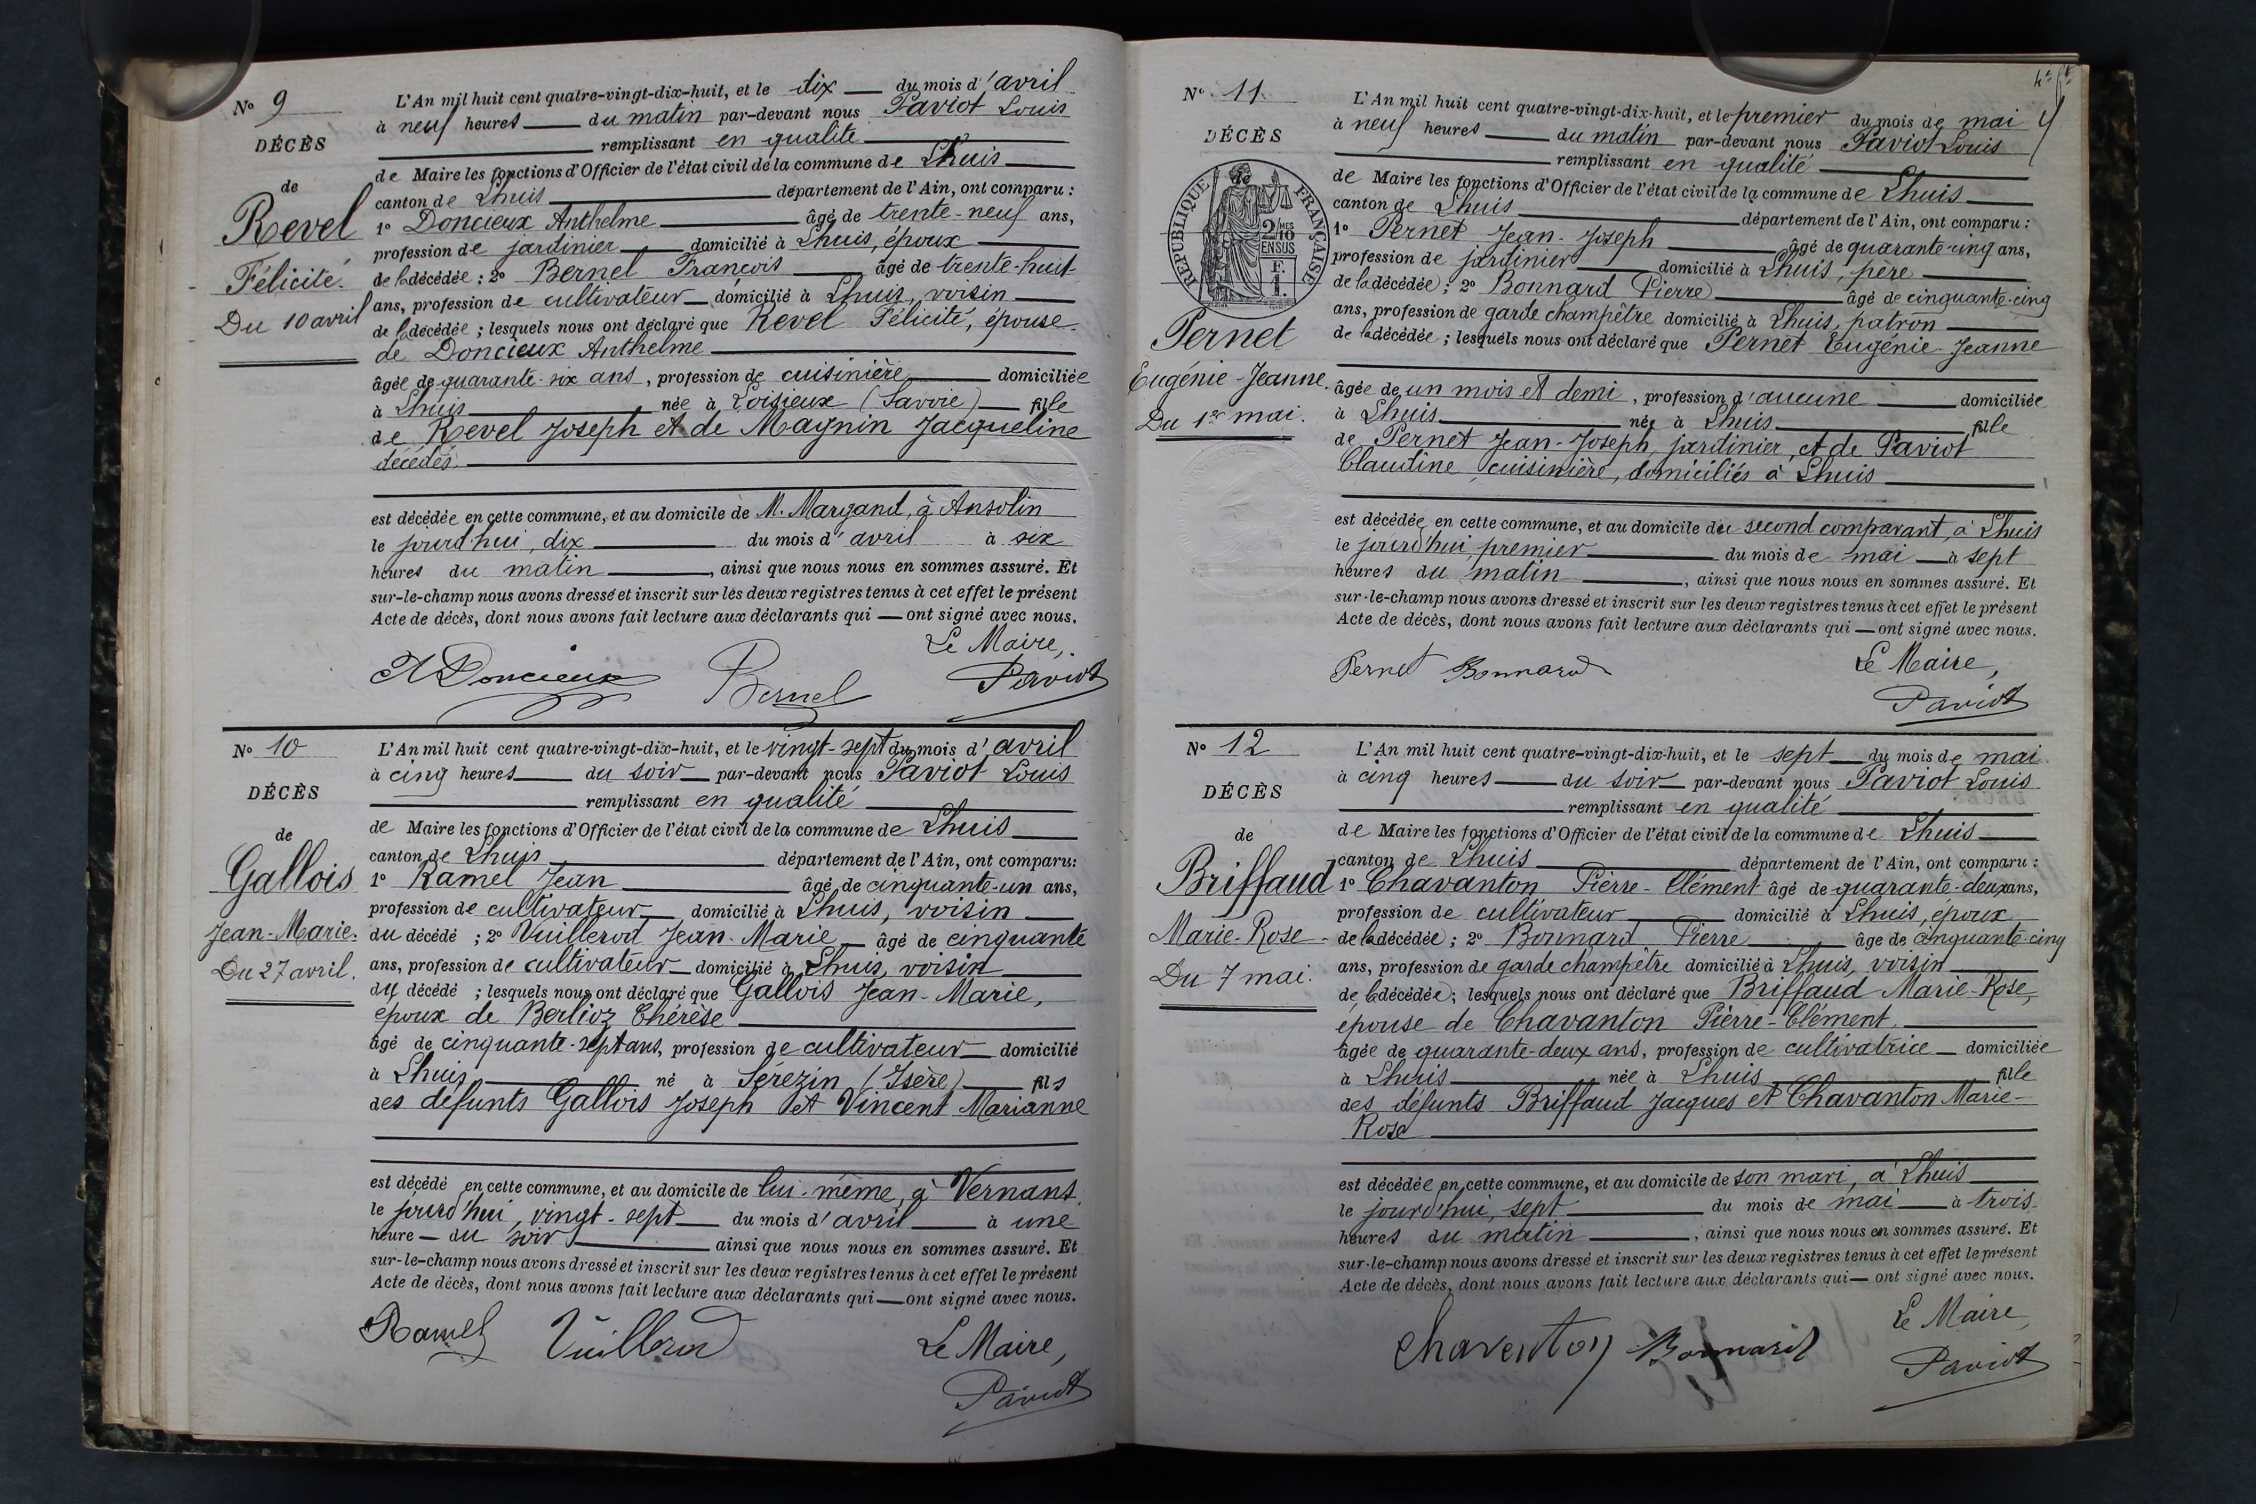 N° 9
DÉCÈS
de
Revel
Félicité.
Du 10 avril
L'An mil huit cent quatre-vingt-dix-huit, et le dix du mois d'avril
à neuf heures du matin par-devant nous Paviot Louis
remplissant en qualité
de Maire les fonctions d'Officier de l'état civil de la commune de Lhuis
canton de Lhuis département de l'Ain, ont comparu :
1° Doncieux Anthelme âgé de trente-neuf ans,
profession de jardinier domicilié à Lhuis, époux
de la décédée ; 2° Bernel François âgé de trente-huit
ans, profession de cultivateur domicilié à Lhuis, voisin
de la décédée ; lesquels nous ont déclaré que Revel Félicité, épouse
de Doncieux Anthelme
âgée de quarante-six ans, profession de cuisinière domiciliée
à Lhuis née à Loisieux (Savoie) fille
de Revel Joseph et de Magnin Jacqueline
décédés.
est décédée en cette commune, et au domicile de M. Margand, à Ansolin
le jourd'hui, dix du mois d'avril à six
heures du matin, ainsi que nous nous en sommes assuré. Et
sur-le-champ nous avons dressé et inscrit sur les deux registres tenus à cet effet le présent
Acte de décès, dont nous avons fait lecture aux déclarants qui ont signé avec nous.
Le Maire,
A Doncieux Bernel Paviot
N° 10
DÉCÈS
de
Gallois
Jean-Marie.
Du 27 avril.
L'An mil huit cent quatre-vingt-dix-huit, et le vingt-sept du mois d'avril
à cinq heures du soir par-devant nous Paviot Louis
remplissant en qualité
de Maire les fonctions d'Officier de l'état civil de la commune de Lhuis
canton de Lhuis département de l'Ain, ont comparu :
1° Ramel Jean âgé de cinquante-un ans,
profession de cultivateur domicilié à Lhuis, voisin
du décédé ; 2° Vuillerod Jean-Marie âgé de cinquante
ans, profession de cultivateur domicilié à Lhuis, voisin
du décédé ; lesquels nous ont déclaré que Gallois Jean-Marie,
époux de Berlioz Thérèse
âgé de cinquante-sept ans, profession de cultivateur domicilié
à Lhuis né à Sérezin (Isère) fils
des défunts Gallois Joseph et Vincent Marianne
est décédé en cette commune, et au domicile de lui-même, à Vernans
le jourd'hui, vingt-sept du mois d'avril à une
heure du soir ainsi que nous nous en sommes assuré. Et
sur-le-champ nous avons dressé et inscrit sur les deux registres tenus à cet effet le présent
Acte de décès, dont nous avons fait lecture aux déclarants qui ont signé avec nous.
Ramel Vuillerod Le Maire,
Paviot
N° 11.
DÉCÈS
de
RÉPUBLIQUE FRANÇAISE
2/10MES
EN SUS
F.
1.
Pernet
Eugénie-Jeanne.
Du 1er mai.
L'An mil huit cent quatre-vingt-dix-huit, et le premier du mois de mai
à neuf heures du matin par-devant nous Paviot Louis
remplissant en qualité
de Maire les fonctions d'Officier de l'état civil de la commune de Lhuis
canton de Lhuis département de l'Ain, ont comparu :
1° Pernet Jean-Joseph âgé de quarante-cinq ans,
profession de jardinier domicilié à Lhuis, père
de la décédée ; 2° Bonnard Pierre âgé de cinquante-cinq
ans, profession de garde champêtre domicilié à Lhuis, patron
de la décédée ; lesquels nous ont déclaré que Pernet Eugénie-Jeanne
âgée de un mois et demi, profession d'aucune domiciliée
à Lhuis née à Lhuis fille
de Pernet Jean-Joseph, jardinier, et de Paviot
Claudine, cuisinière, domiciliés à Lhuis
est décédée en cette commune, et au domicile du second comparant, à Lhuis
le jourd'hui, premier du mois de mai à sept
heures du matin, ainsi que nous nous en sommes assuré. Et
sur-le-champ nous avons dressé et inscrit sur les deux registres tenus à cet effet le présent
Acte de décès, dont nous avons fait lecture aux déclarants qui ont signé avec nous.
Pernet Bonnard Le Maire,
Paviot
N° 12
DÉCÈS
de
Briffaud
Marie-Rose
Du 7 mai.
L'An mil huit cent quatre-vingt-dix-huit, et le sept du mois de mai
à cinq heures du soir par-devant nous Paviot Louis
remplissant en qualité
de Maire les fonctions d'Officier de l'état civil de la commune de Lhuis
canton de Lhuis département de l'Ain, ont comparu :
1° Chavanton Pierre-Clément âgé de quarante-deux ans,
profession de cultivateur domicilié à Lhuis, époux
de la décédée ; 2° Bonnard Pierre âgé de cinquante-cinq
ans, profession de garde champêtre domicilié à Lhuis, voisin
de la décédée ; lesquels nous ont déclaré que Briffaud Marie-Rose,
épouse de Chavanton Pierre-Clément.
âgée de quarante-deux ans, profession de cultivatrice domiciliée
à Lhuis née à Lhuis fille
des défunts Briffaud Jacques et Chavanton Marie-
Rose
est décédée en cette commune, et au domicile de son mari, à Lhuis
le jourd'hui, sept du mois de mai à trois
heures du matin, ainsi que nous nous en sommes assuré. Et
sur-le-champ nous avons dressé et inscrit sur les deux registres tenus à cet effet le présent
Acte de décès, dont nous avons fait lecture aux déclarants qui ont signé avec nous.
Le Maire,
Chavanton Bonnard Paviot